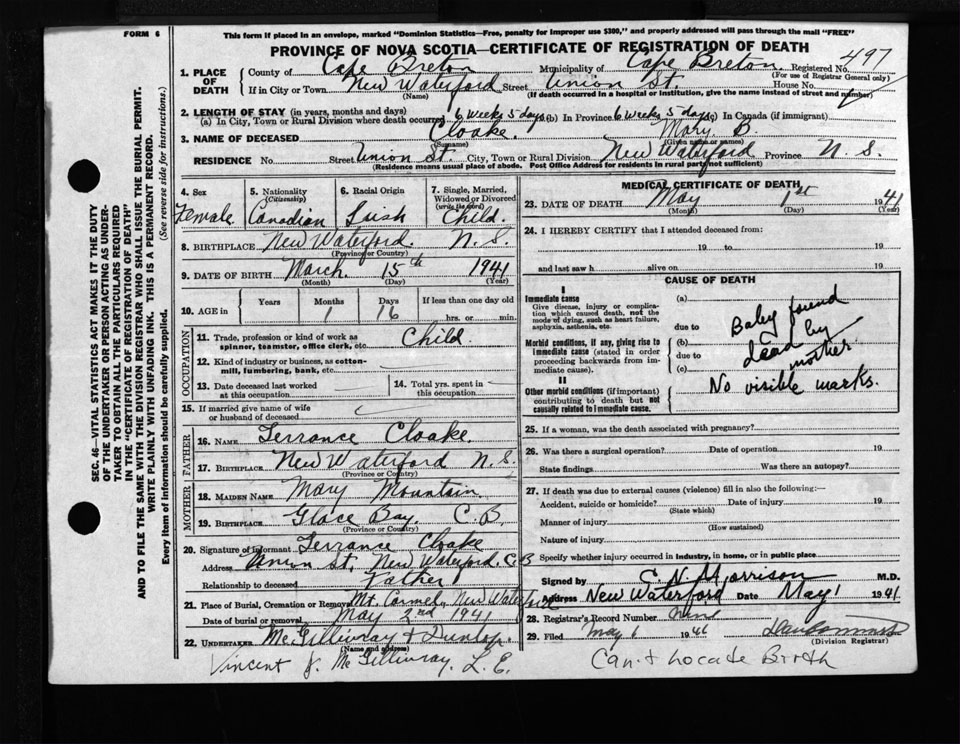 FORM 6
This form if placed in an envelope, marked "Dominion Statistics—Free, penalty for improper use $300," and properly addressed will pass through the mail "FREE"
PROVINCE OF NOVA SCOTIA—CERTIFICATE OF REGISTRATION OF DEATH
SEC. 46—VITAL STATISTICS ACT MAKES IT THE DUTY
OF THE UNDERTAKER OR PERSON ACTING AS UNDER-
TAKER TO OBTAIN ALL THE PARTICULARS REQUIRED
IN THE "CERTIFICATE OF REGISTRATION OF DEATH"
AND TO FILE THE SAME WITH THE DIVISION REGISTRAR WHO SHALL ISSUE THE BURIAL PERMIT.
WRITE PLAINLY WITH UNFADING INK. THIS IS A PERMANENT RECORD.
Every item of information should be carefully supplied. (See reverse side for instructions.)
1. PLACE OF DEATH County of Cape Breton Municipality of Cape Breton. Registered No. 497
(For use of Registrar General only)
If in City or Town New Waterford Street Union St. House No.
(Name) (If death occurred in a hospital or institution, give the name instead of street and number)
2. LENGTH OF STAY (in years, months and days)
(a) In City, Town or Rural Division where death occurred 6 weeks 5 days (b) In Province 6 weeks 5 days (c) In Canada (if immigrant)
3. NAME OF DECEASED Cloake. Mary B.
(Surname) (Given name or names)
RESIDENCE No. Street Union St. City, Town or Rural Division New Waterford Province N. S.
(Residence means usual place of abode. Post Office Address for residents in rural parts not sufficient)
4. Sex Female
5. Nationality (Citizenship) Canadian
6. Racial Origin Irish
7. Single, Married, Widowed or Divorced (write the word) Child.
8. BIRTHPLACE New Waterford. N. S.
(Province or Country)
9. DATE OF BIRTH March. 15th 1941
(Month) (Day) (Year)
10. AGE in Years Months 1 Days 16 If less than one day old hrs. or min.
OCCUPATION
11. Trade, profession or kind of work as spinner, teamster, office clerk, etc. Child.
12. Kind of industry or business, as cotton-mill, lumbering, bank, etc.
13. Date deceased last worked at this occupation
14. Total yrs. spent in this occupation
15. If married give name of wife or husband of deceased
FATHER
16. NAME Terrance Cloake.
17. BIRTHPLACE New Waterford N. S.
(Province or Country)
MOTHER
18. MAIDEN NAME Mary Mountain.
19. BIRTHPLACE Glace Bay. C. B.
(Province or Country)
20. Signature of informant Terrance Cloake
Address Union St. New Waterford. C. B
Relationship to deceased Father
21. Place of Burial, Cremation or Removal Mt. Carmel, New Waterford
Date of burial or removal May 2nd 1941
22. UNDERTAKER McGillivray & Dunlop.
(Name and address)
Vincent J. McGillivray. L. E.
MEDICAL CERTIFICATE OF DEATH
23. DATE OF DEATH May 1st 1941
(Month) (Day) (Year)
24. I HEREBY CERTIFY that I attended deceased from
19 to 19
and last saw h alive on 19
CAUSE OF DEATH
I
Immediate cause
Give disease, injury or complication which caused death, not the mode of dying, such as heart failure, asphyxia, asthenia, etc.
Morbid conditions, if any, giving rise to immediate cause (stated in order proceeding backwards from immediate cause).
II
Other morbid conditions (if important) contributing to death but not causally related to immediate cause.
(a)
due to
(b)
due to
(c)
Baby found
dead by
mother.
No visible marks.
25. If a woman, was the death associated with pregnancy?
26. Was there a surgical operation? Date of operation 19
State findings Was there an autopsy?
27. If death was due to external causes (violence) fill in also the following:—
Accident, suicide or homicide? Date of injury 19
(State which)
Manner of injury
(How sustained)
Nature of injury
Specify whether injury occurred in industry, in home, or in public place
Signed by C. N. Morrison M.D.
Address New Waterford Date May 1 1941
28. Registrar's Record Number
29. Filed May 6 1941
(Division Registrar)
Can't Locate Birth